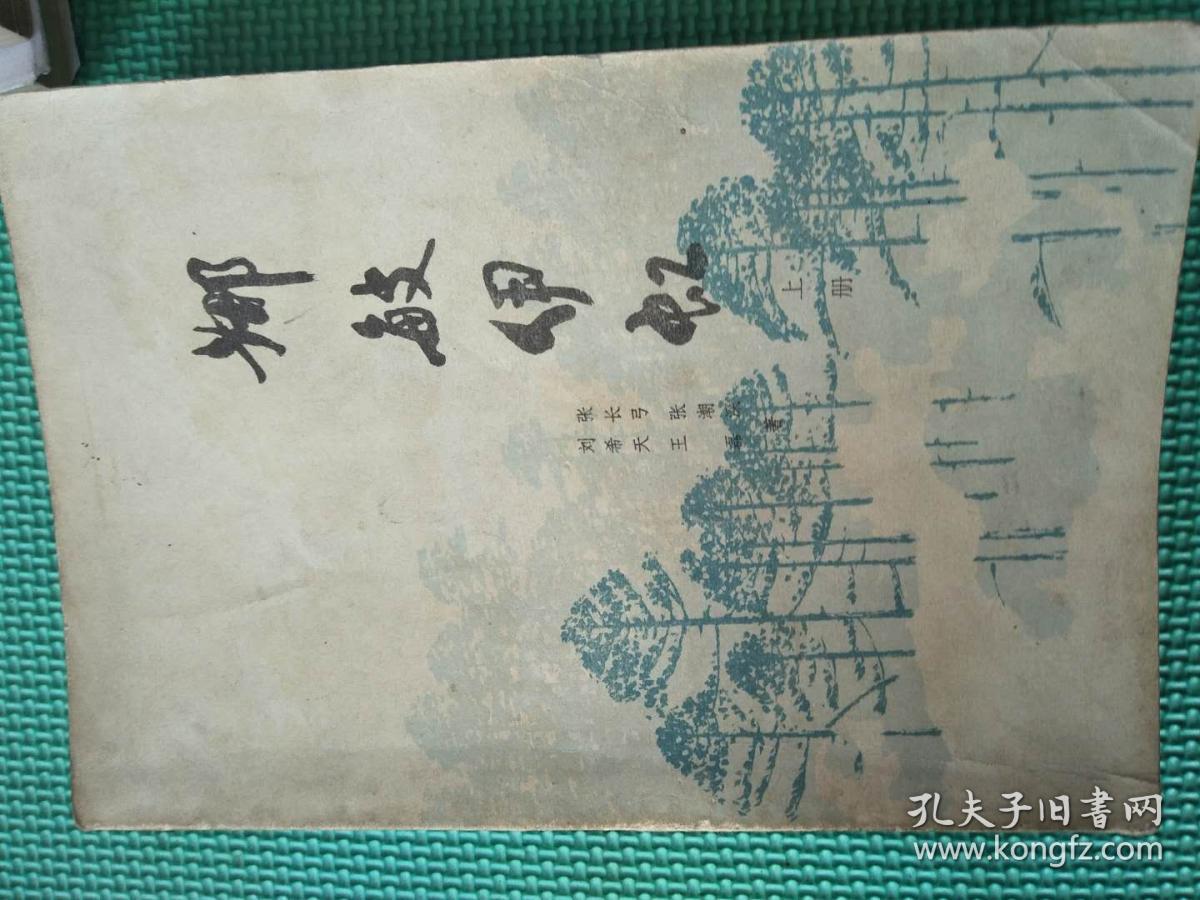 娜敏伊虹
上册
张长弓 张潮
刘希天 王 著
孔夫子旧书网
www.kongfz.com